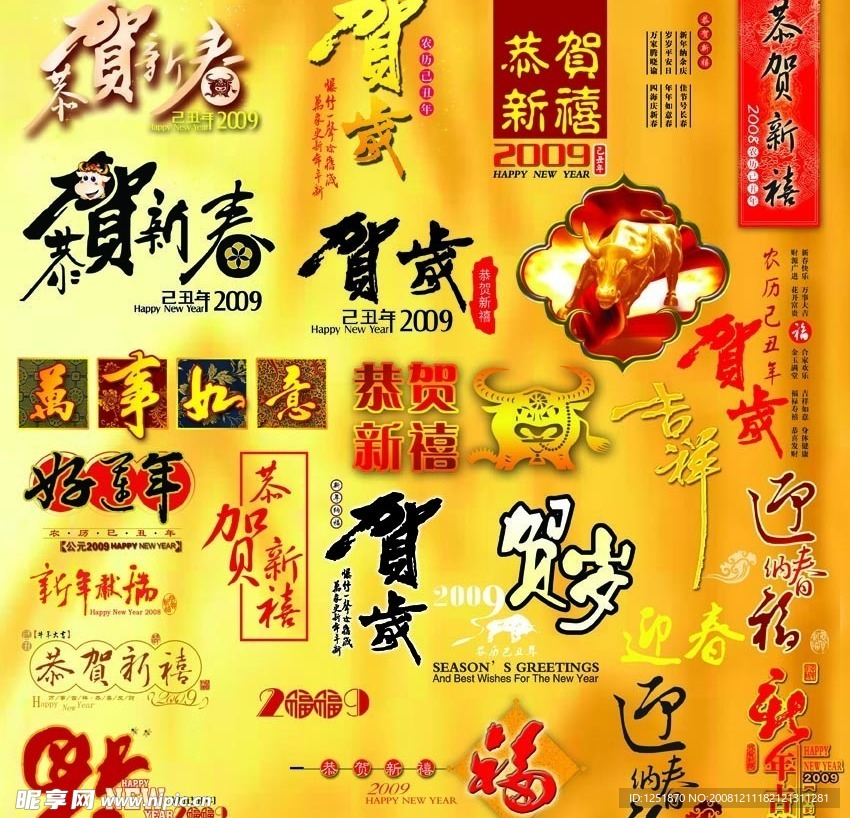 恭賀新春
己丑年 2009
Happy New Year
賀歲
农历己丑年
爆竹一聲除舊歲
萬象更新年年新
恭賀
新禧
2009 己丑年
HAPPY NEW YEAR
恭賀新禧
新年纳余庆 佳节号长春
岁岁平安日 年年如意春
万家腾晓谕 四海庆新春
恭贺新禧
2008农历己丑年
恭賀新春
己丑年 2009
Happy New Year
賀歲
恭贺新禧
己丑年 2009
Happy New Year
农历己丑年
賀歲
新春快乐 万事大吉
财源广进 花开富贵
福
合家欢乐 吉祥如意 身体健康
金玉满堂 福禄寿禧 恭喜发财
萬事如意
恭贺
新禧
吉祥
好運年
农·历·己·丑·年
【公元2009 HAPPY NEW YEAR】
恭贺新禧
新年纳福
賀歲
爆竹一聲除舊歲
萬象更新年年新
贺岁
2009
农历己丑年
SEASON'S GREETINGS
And Best Wishes For The New Year
迎春
纳福
新年献瑞
Happy New Year 2008
己丑
【牛年大吉】
恭賀新禧
万事吉祥·恭喜发财
Happy New Year
2009
迎春
2福福9
恭贺新禧
2009
HAPPY NEW YEAR
福
迎春
纳
新年吉
HAPPY
NEW YEAR
2009
HAPPY
NEW
YEAR
2009
昵享网 www.nipic.cn
ID:1251870 NO:20081211182121311281